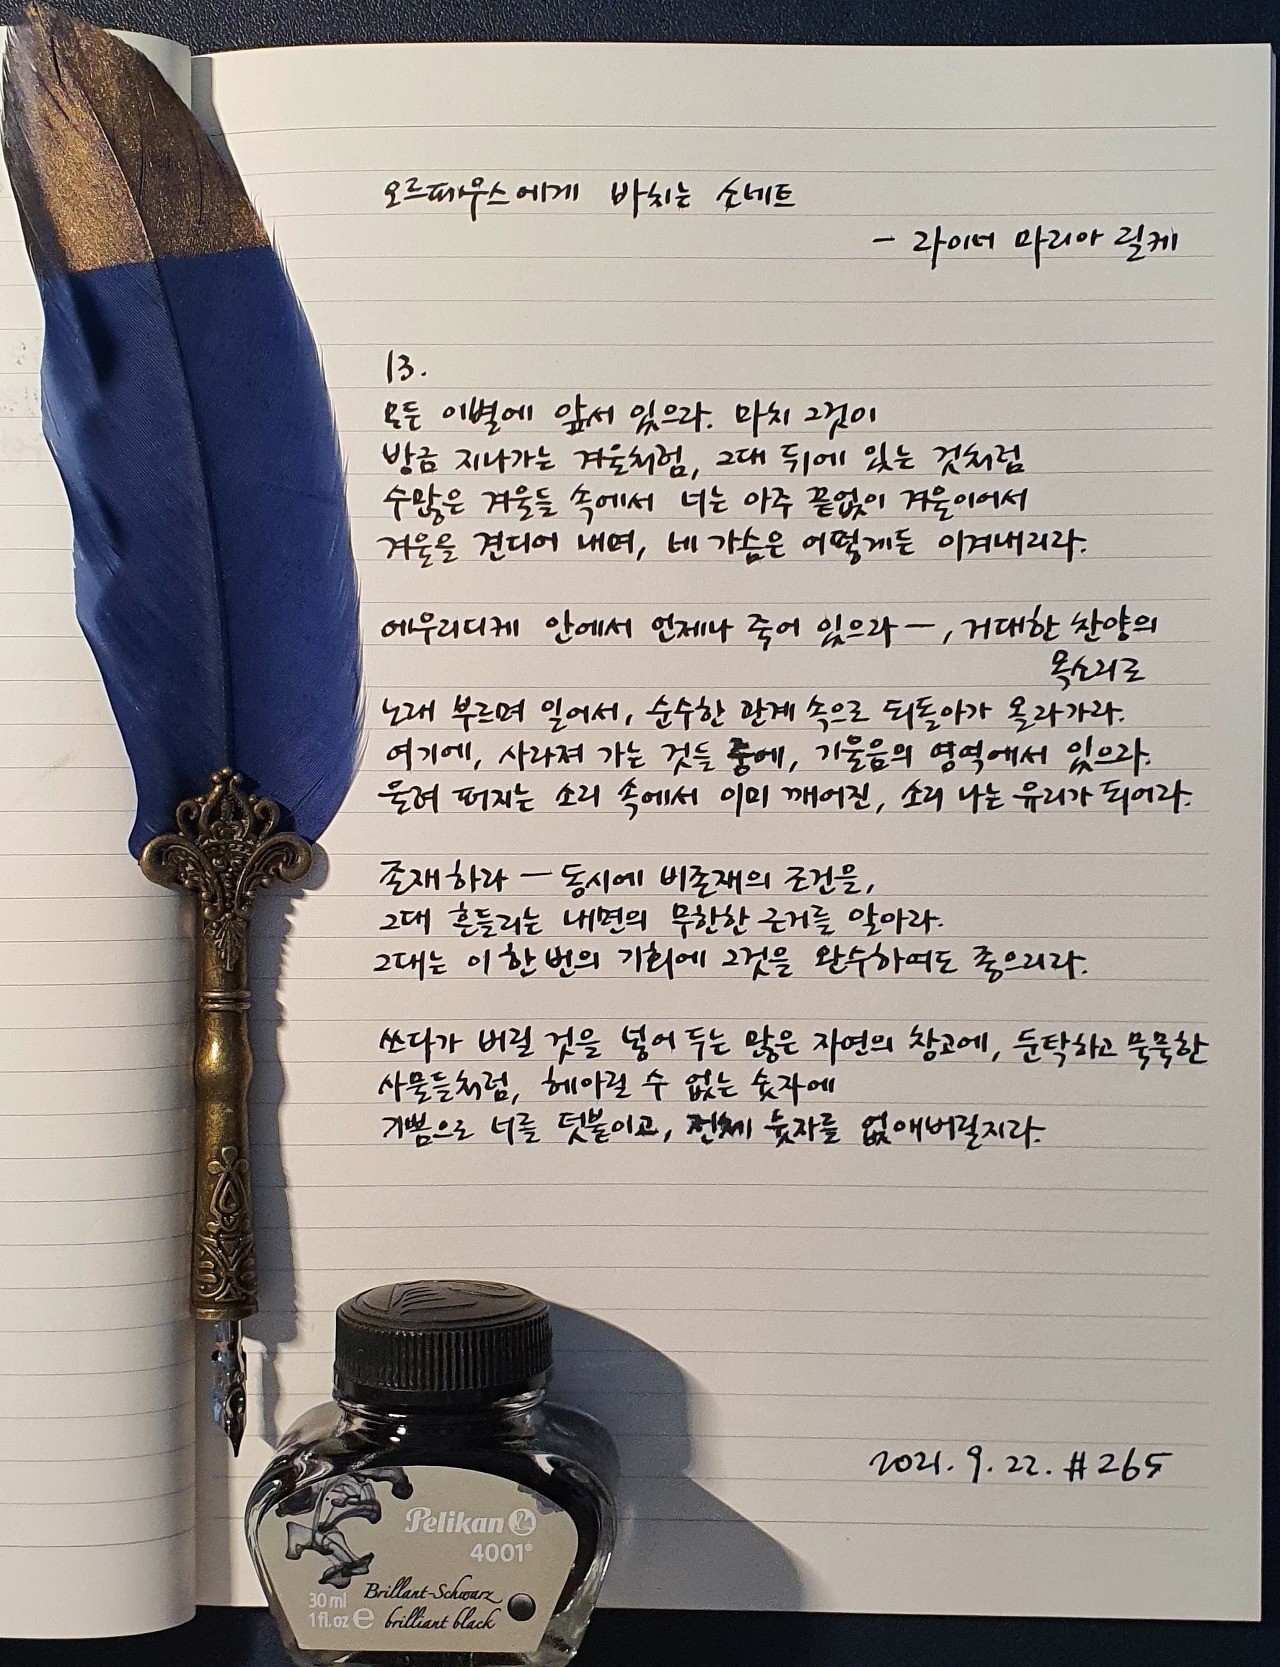 오르페우스에게 바치는 소네트
- 라이너 마리아 릴케
13.
모든 이별에 앞서 있으라. 마치 그것이
방금 지나가는 겨울처럼, 그대 뒤에 있는 것처럼
수많은 겨울들 속에서 너는 아주 끝없이 겨울이어서
겨울을 견디어 내며, 네 가슴은 어떻게든 이겨내리라.
에우리디케 안에서 언제나 죽어 있으라 —, 거대한 찬양의
목소리로
노래 부르며 일어서, 순수한 관계 속으로 되돌아가 올라가라.
여기에, 사라져 가는 것들 중에, 기울음의 영역에서 있으라.
울려 퍼지는 소리 속에서 이미 깨어진, 소리 나는 유리가 되어라.
존재하라 — 동시에 비존재의 조건을,
그대 흔들리는 내면의 무한한 근거를 알아라.
그대는 이 한 번의 기회에 그것을 완수하여도 좋으리라.
쓰다가 버릴 것을 넣어 두는 많은 자연의 창고에, 둔탁하고 묵묵한
사물들처럼, 헤아릴 수 없는 숫자에
기쁨으로 너를 덧붙이고, 전체 숫자를 없애버릴지라.
2021. 9. 22. #265
Pelikan
4001®
Brillant-Schwarz
brilliant black
30 ml
1 fl.oz e